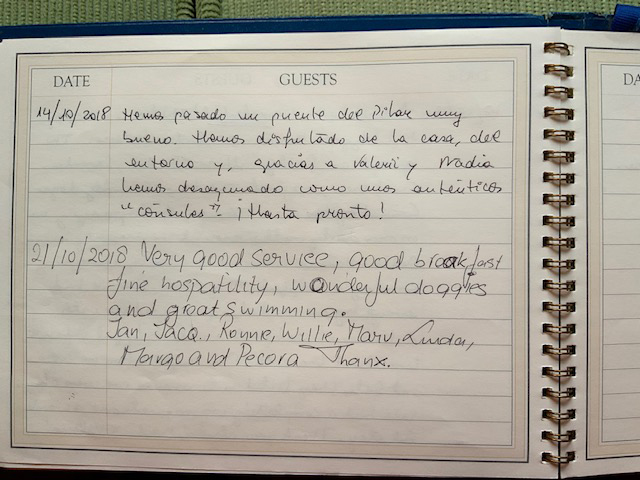 DATE GUESTS DA
14/10/2018 Hemos pasado un puente del Pilar muy
bueno. Hemos disfrutado de la casa, del
entorno y, gracias a Valerii y Nadia
hemos desayunado como unos auténticos
"cónsules". ¡Hasta pronto!
21/10/2018 Very good service, good breakfast
fine hospatility, wonderful doggies
and great swimming.
Jan, Jacq., Ronnie, Willie, Marv, Linda,
Margo and Pecora Thanx.